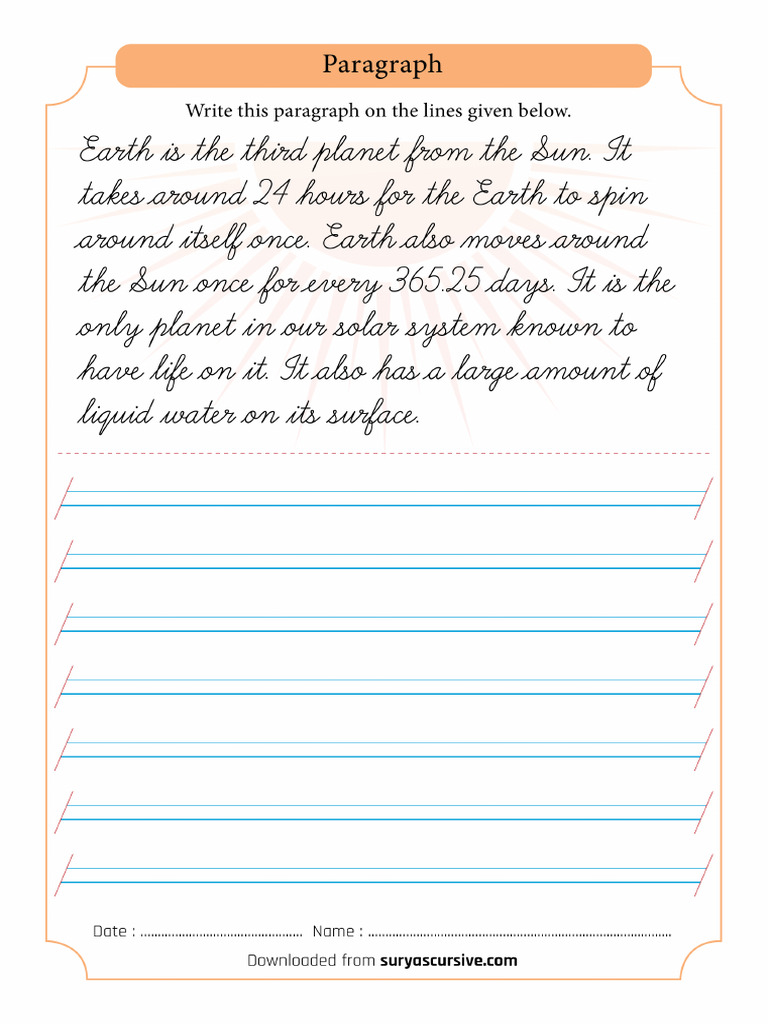 Paragraph
Write this paragraph on the lines given below.
Earth is the third planet from the Sun. It
takes around 24 hours for the Earth to spin
around itself once. Earth also moves around
the Sun once for every 365.25 days. It is the
only planet in our solar system known to
have life on it. It also has a large amount of
liquid water on its surface.
Date : ............................................... Name : ........................................................................................
Downloaded from suryascursive.com